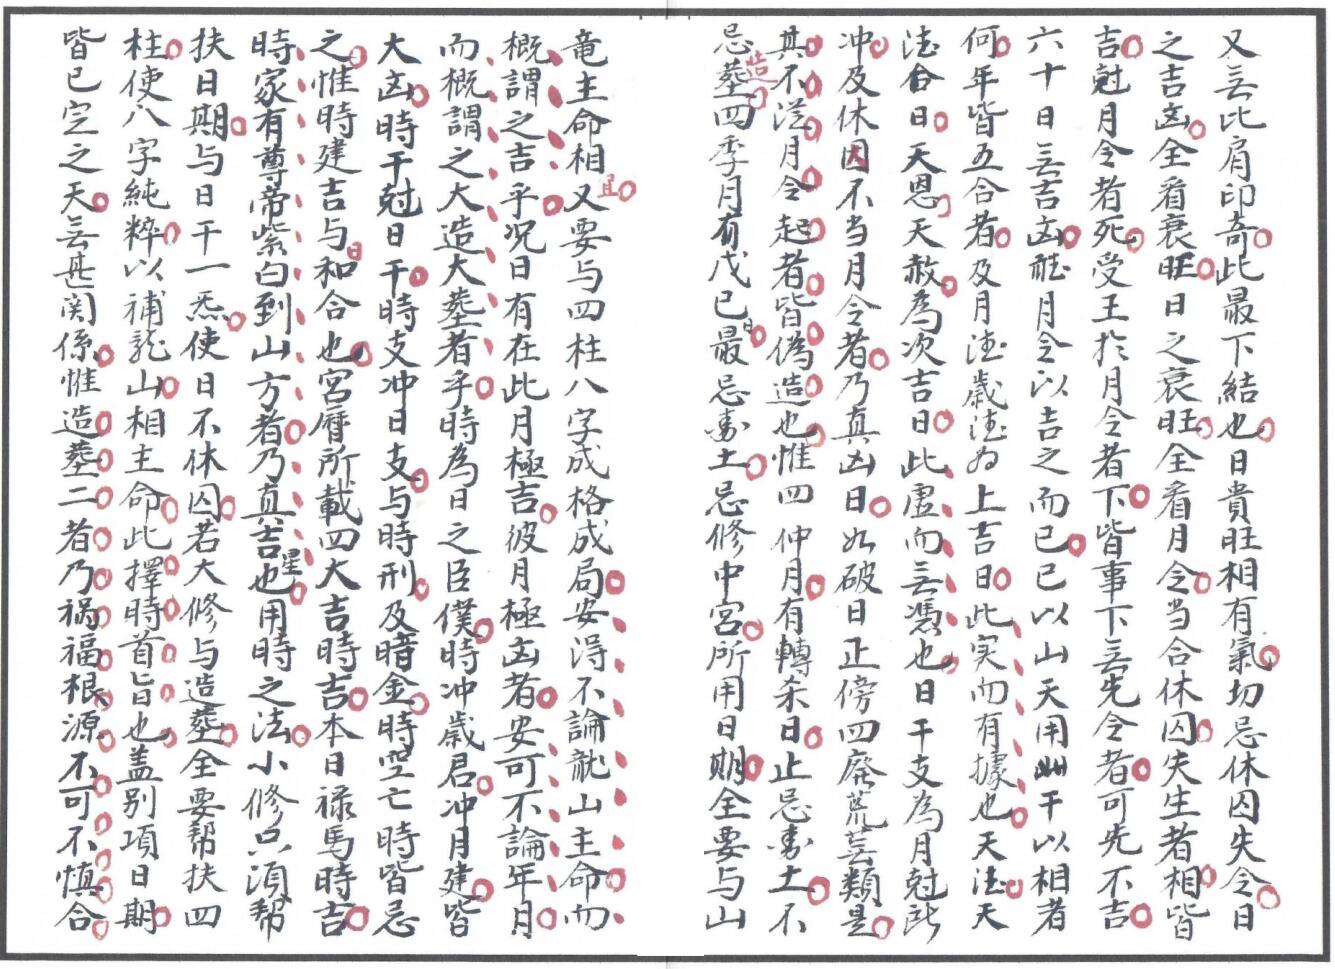 又无比肩印奇此最下結也日貴旺相有氣切忌休囚失令日
之吉凶全看衰旺日之衰旺全看月令当合休囚失生者相皆
吉尅月令者死受王於月令者下皆事下无先令者可先不吉
六十日无吉凶月令以吉之而已已以山天用干以相者
何年皆五合者及月德歲德为上吉日此实而有據也天德天
德合日天恩天赦為次吉日此虛而无憑也日干支為月尅此
冲及休囚不当月令者乃真凶日如破日正傍四廢荒芜類是
其不從月令起者皆偽造也惟四仲月有轉杀日止忌動土不
忌造葬四季月有戊己日最忌動土忌修中宮所用日期全要与山
竜主命相且又要与四柱八字成格成局安得不論龍山主命而
概謂之吉乎况日有在此月極吉彼月極凶者安可不論年月
而概謂之大造大葬者乎時為日之臣僕時冲歲君冲月建皆
大凶時干尅日干時支冲日支与時刑及暗金時空亡時皆忌
之惟時建吉与日和合也宮曆所載四大吉時吉本日禄馬時吉
時家有尊帝紫白到山方者乃真吉星也用時之法小修只須幇
扶日期与日干一炁使日不休囚若大修与造葬全要幇扶四
柱使八字純粹以補龍山相主命此擇時首旨也盖别項日期
皆已定之天无甚関係惟造葬二者乃祸福根源不可不慎合